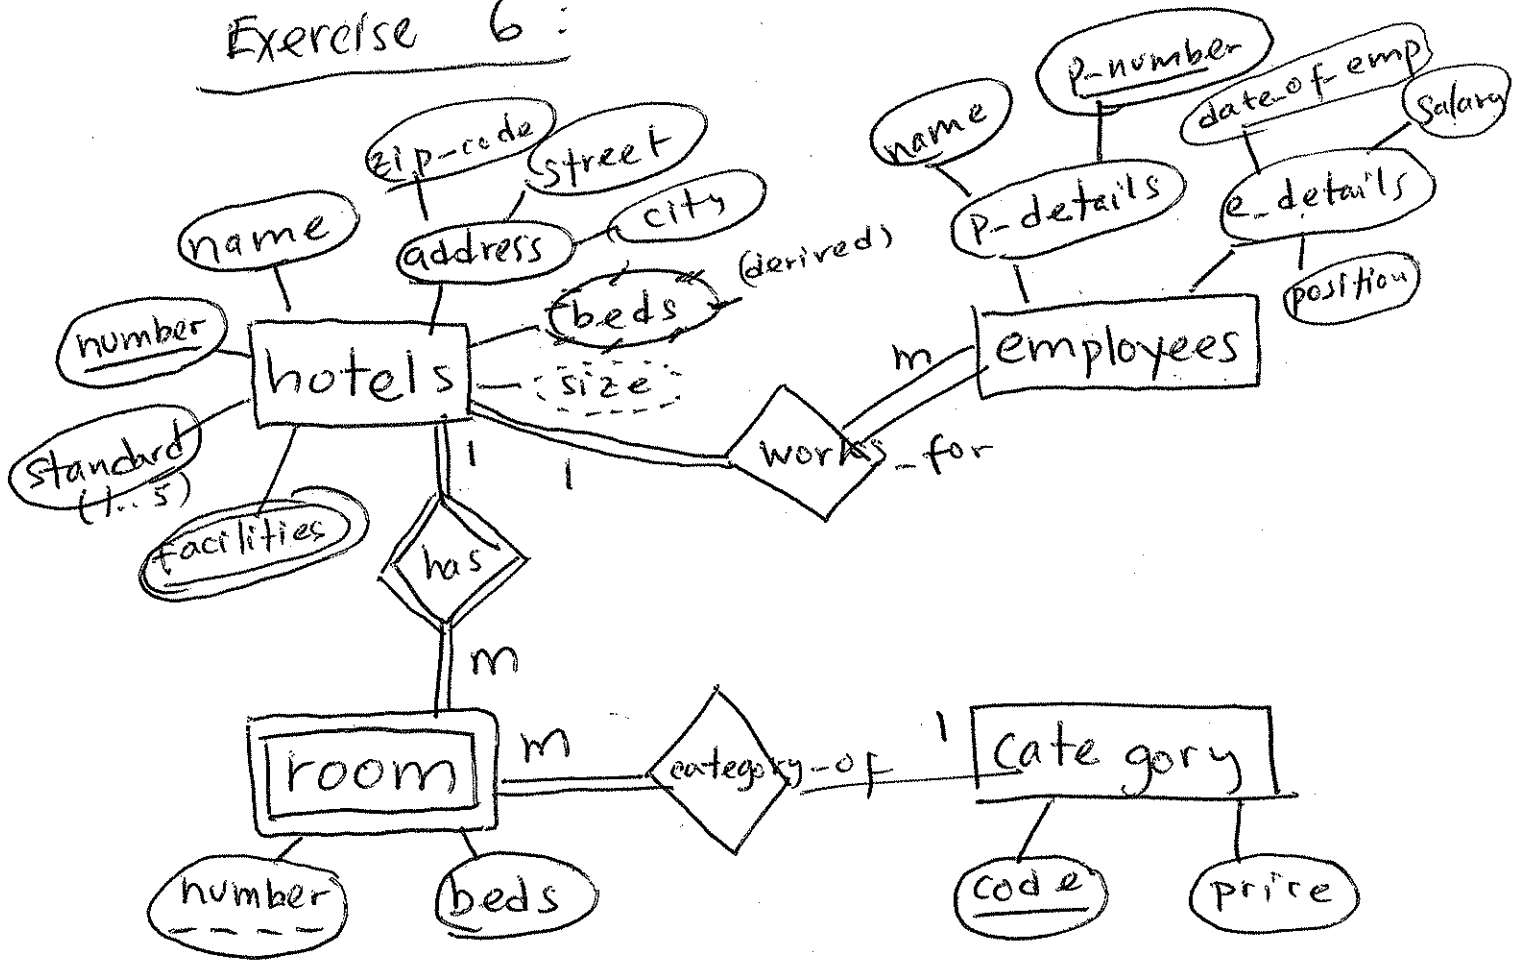 Exercise 6:
zip-code
street
city
name
address
number
beds
(derived)
hotels
size
standard
(1..5)
facilities
P_number
date_of_emp
Salary
name
P_details
e_details
position
employees
m
works_for
1
1
has
m
room
m
category_of
1
category
number
beds
code
price